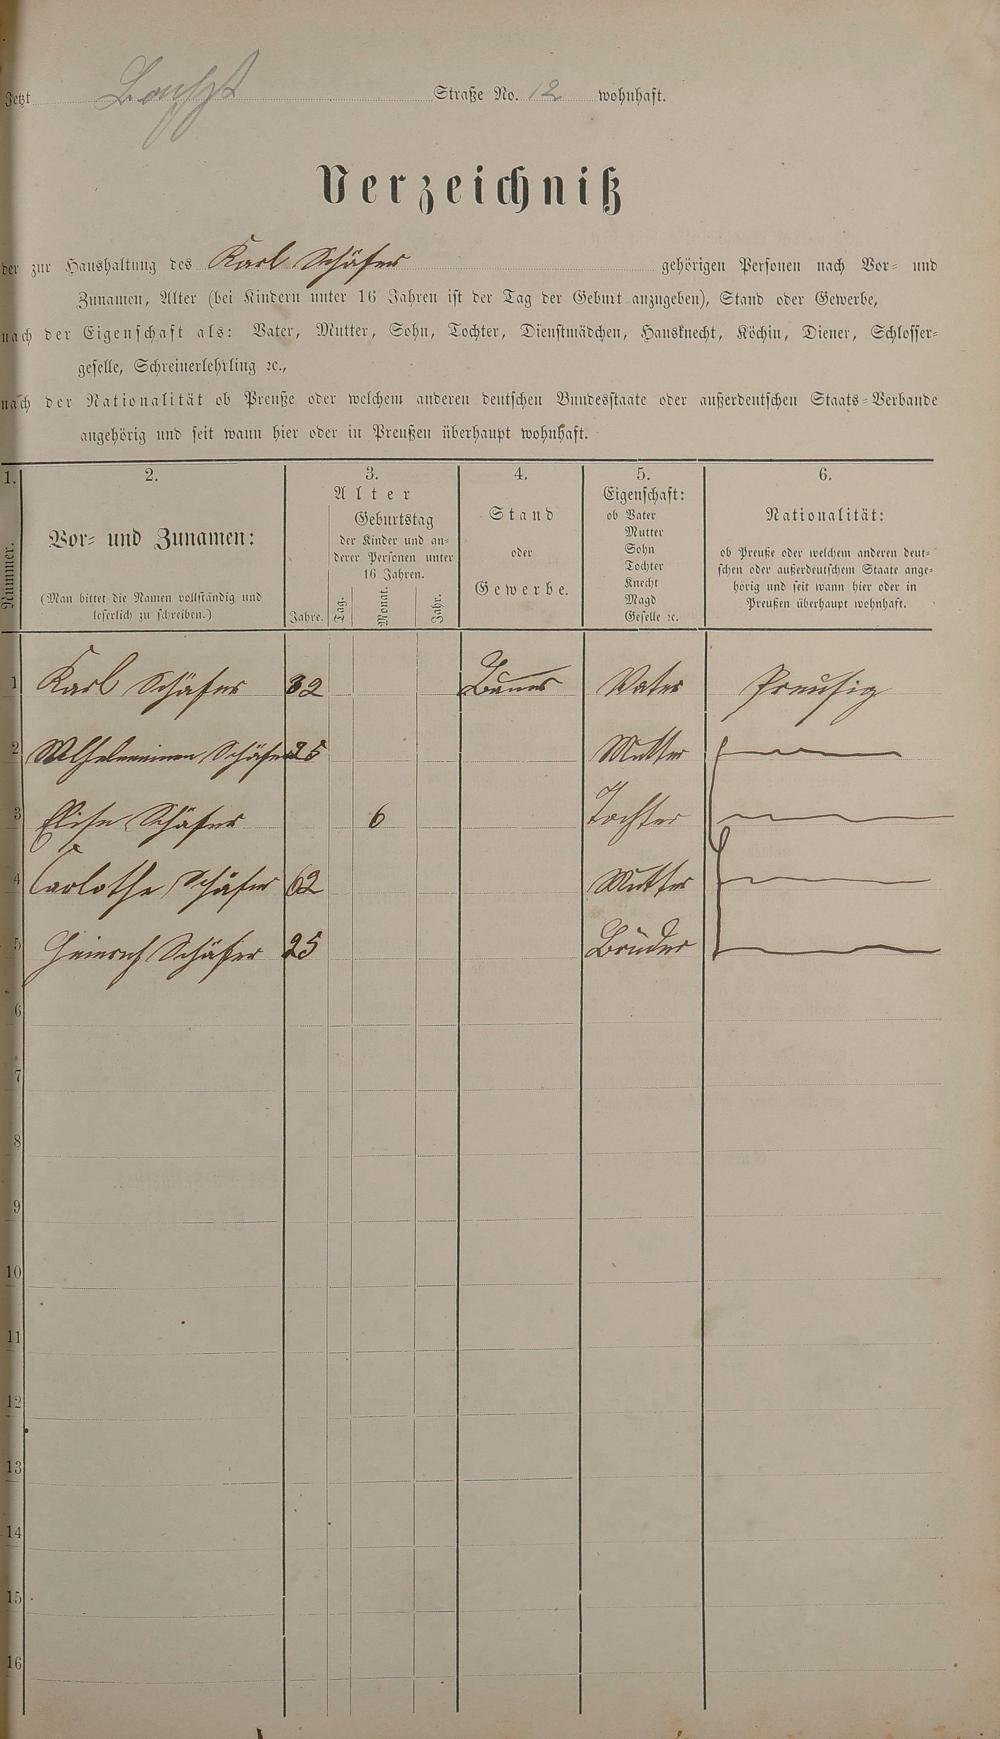 Jetzt Straße No. 12 wohnhaft.
Verzeichniß
der zur Haushaltung des Karl Schäfer gehörigen Personen nach Vor- und
Zunamen, Alter (bei Kindern unter 16 Jahren ist der Tag der Geburt anzugeben), Stand oder Gewerbe,
nach der Eigenschaft als: Vater, Mutter, Sohn, Tochter, Dienstmädchen, Hausknecht, Köchin, Diener, Schlosser-
geselle, Schreinerlehrling ꝛc.,
nach der Nationalität ob Preuße oder welchem anderen deutschen Bundesstaate oder außerdeutschen Staats-Verbande
angehörig und seit wann hier oder in Preußen überhaupt wohnhaft.
1. 2. 3. 4. 5. 6.
Nummer.
Vor- und Zunamen:
(Man bittet die Namen vollständig und
leserlich zu schreiben.)
Alter
Jahre.
Geburtstag
der Kinder und an-
derer Personen unter
16 Jahren.
Tag. Monat. Jahr.
Stand
oder
Gewerbe.
Eigenschaft:
ob Vater
Mutter
Sohn
Tochter
Knecht
Magd
Geselle ꝛc.
Nationalität:
ob Preuße oder welchem anderen deut-
schen oder außerdeutschem Staate ange-
hörig und seit wann hier oder in
Preußen überhaupt wohnhaft.
1 Karl Schäfer 32 Vater Preußig
2 Schäfer 25 Mutter
3 Elise Schäfer 6 Tochter
4 Carlothe Schäfer 62 Mutter
5 Heinrich Schäfer 25 Brüder
6
7
8
9
10
11
12
13
14
15
16